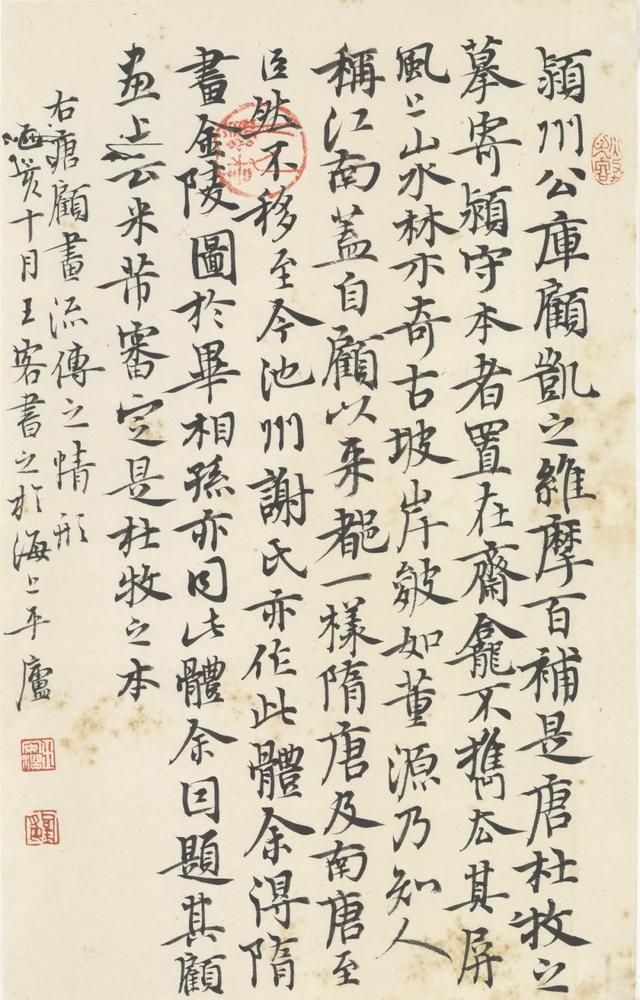 潁州公庫顧凱之維摩百補是唐杜牧之
摹寄潁守本者置在齋龕不攜去其屏
風上山水林木奇古坡岸皴如董源乃知人
稱江南蓋自顧以来都一樣隋唐及南唐至
巨然不移至今池州謝氏亦作此體余得隋
畫金陵圖於畢相孫亦同此體余因題其顧
畫上云米芾審定是杜牧之本
右顧畫流傳之情形
亥十月王客書之於海上平廬